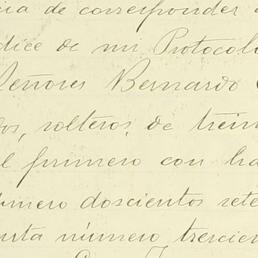 cia de corresponder a
dice de mi Protocolo
Señores Bernardo
dos, solteros, de trein
el primero con ha
número doscientos sete
enta número trescien